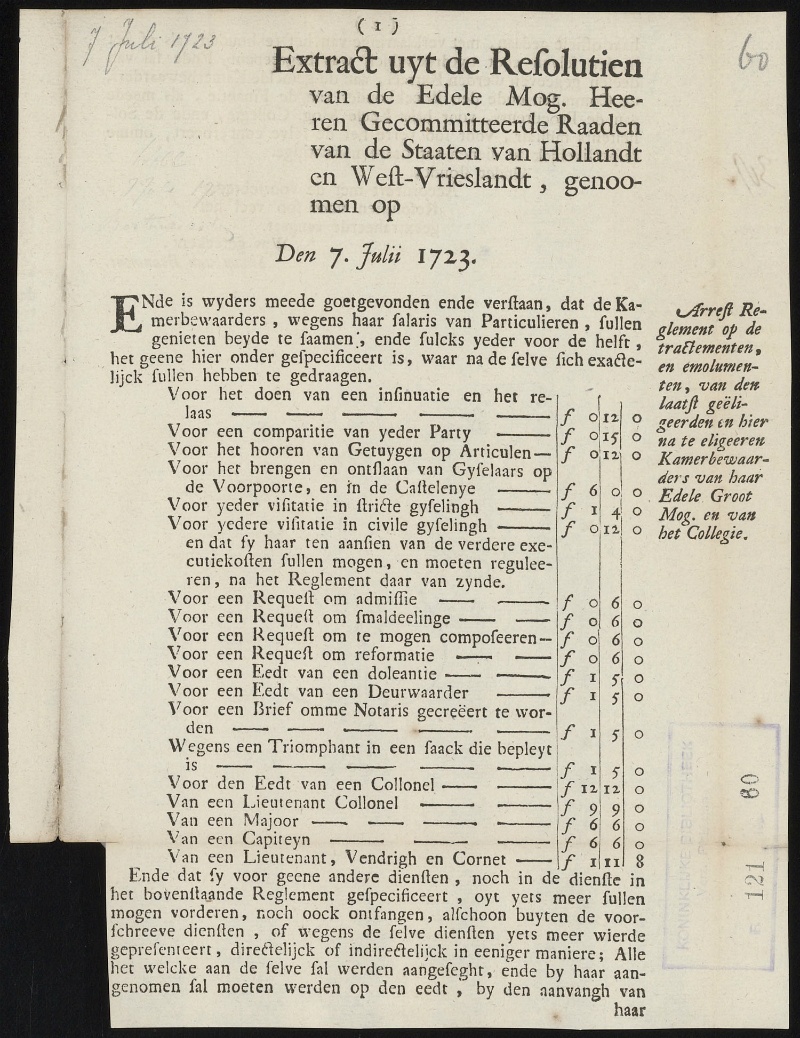 7 Juli 1723
( 1 )
60
Extract uyt de Reſolutien
van de Edele Mog. Hee-
ren Gecommitteerde Raaden
van de Staaten van Hollandt
en Weſt-Vrieslandt, genoo-
men op
Den 7. Julii 1723.
ENde is wyders meede goetgevonden ende verſtaan, dat de Ka-
merbewaarders, wegens haar ſalaris van Particulieren, ſullen
genieten beyde te ſaamen, ende ſulcks yeder voor de helft,
het geene hier onder geſpecificeert is, waar na de ſelve ſich exacte-
lijck ſullen hebben te gedraagen.
Voor het doen van een inſinuatie en het re-
laas — — — — — f 0 12 0
Voor een comparitie van yeder Party — f 0 15 0
Voor het hooren van Getuygen op Articulen— f 0 12 0
Voor het brengen en ontſlaan van Gyſelaars op
de Voorpoorte, en in de Caſtelenye — f 6 0 0
Voor yeder viſitatie in ſtricte gyſelingh — f 1 4 0
Voor yedere viſitatie in civile gyſelingh — f 0 12 0
en dat ſy haar ten aanſien van de verdere exe-
cutiekoſten ſullen mogen, en moeten regulee-
ren, na het Reglement daar van zynde.
Voor een Requeſt om admiſſie — — f 0 6 0
Voor een Requeſt om ſmaldeelinge — — f 0 6 0
Voor een Requeſt om te mogen compoſeeren— f 0 6 0
Voor een Requeſt om reformatie — — f 0 6 0
Voor een Eedt van een doleantie — — f 1 5 0
Voor een Eedt van een Deurwaarder — f 1 5 0
Voor een Brief omme Notaris gecreëert te wor-
den — — — — — f 1 5 0
Wegens een Triomphant in een ſaack die bepleyt
is — — — — — f 1 5 0
Voor den Eedt van een Collonel — — f 12 12 0
Van een Lieutenant Collonel — — f 9 9 0
Van een Majoor — — — — f 6 6 0
Van een Capiteyn — — — f 6 6 0
Van een Lieutenant, Vendrigh en Cornet — f 1 11 8
Ende dat ſy voor geene andere dienſten, noch in de dienſte in
het bovenſtaande Reglement geſpecificeert, oyt yets meer ſullen
mogen vorderen, noch oock ontfangen, alſchoon buyten de voor-
ſchreeve dienſten, of wegens de ſelve dienſten yets meer wierde
gepreſenteert, directelijck of indirectelijck in eeniger maniere; Alle
het welcke aan de ſelve ſal werden aangeſeght, ende by haar aan-
genomen ſal moeten werden op den eedt, by den aanvangh van
haar
Arreſt Re-
glement op de
tractementen,
en emolumen-
ten, van den
laatſt geëli-
geerden en hier
na te eligeeren
Kamerbewaar-
ders van haar
Edele Groot
Mog. en van
het Collegie.
121 60